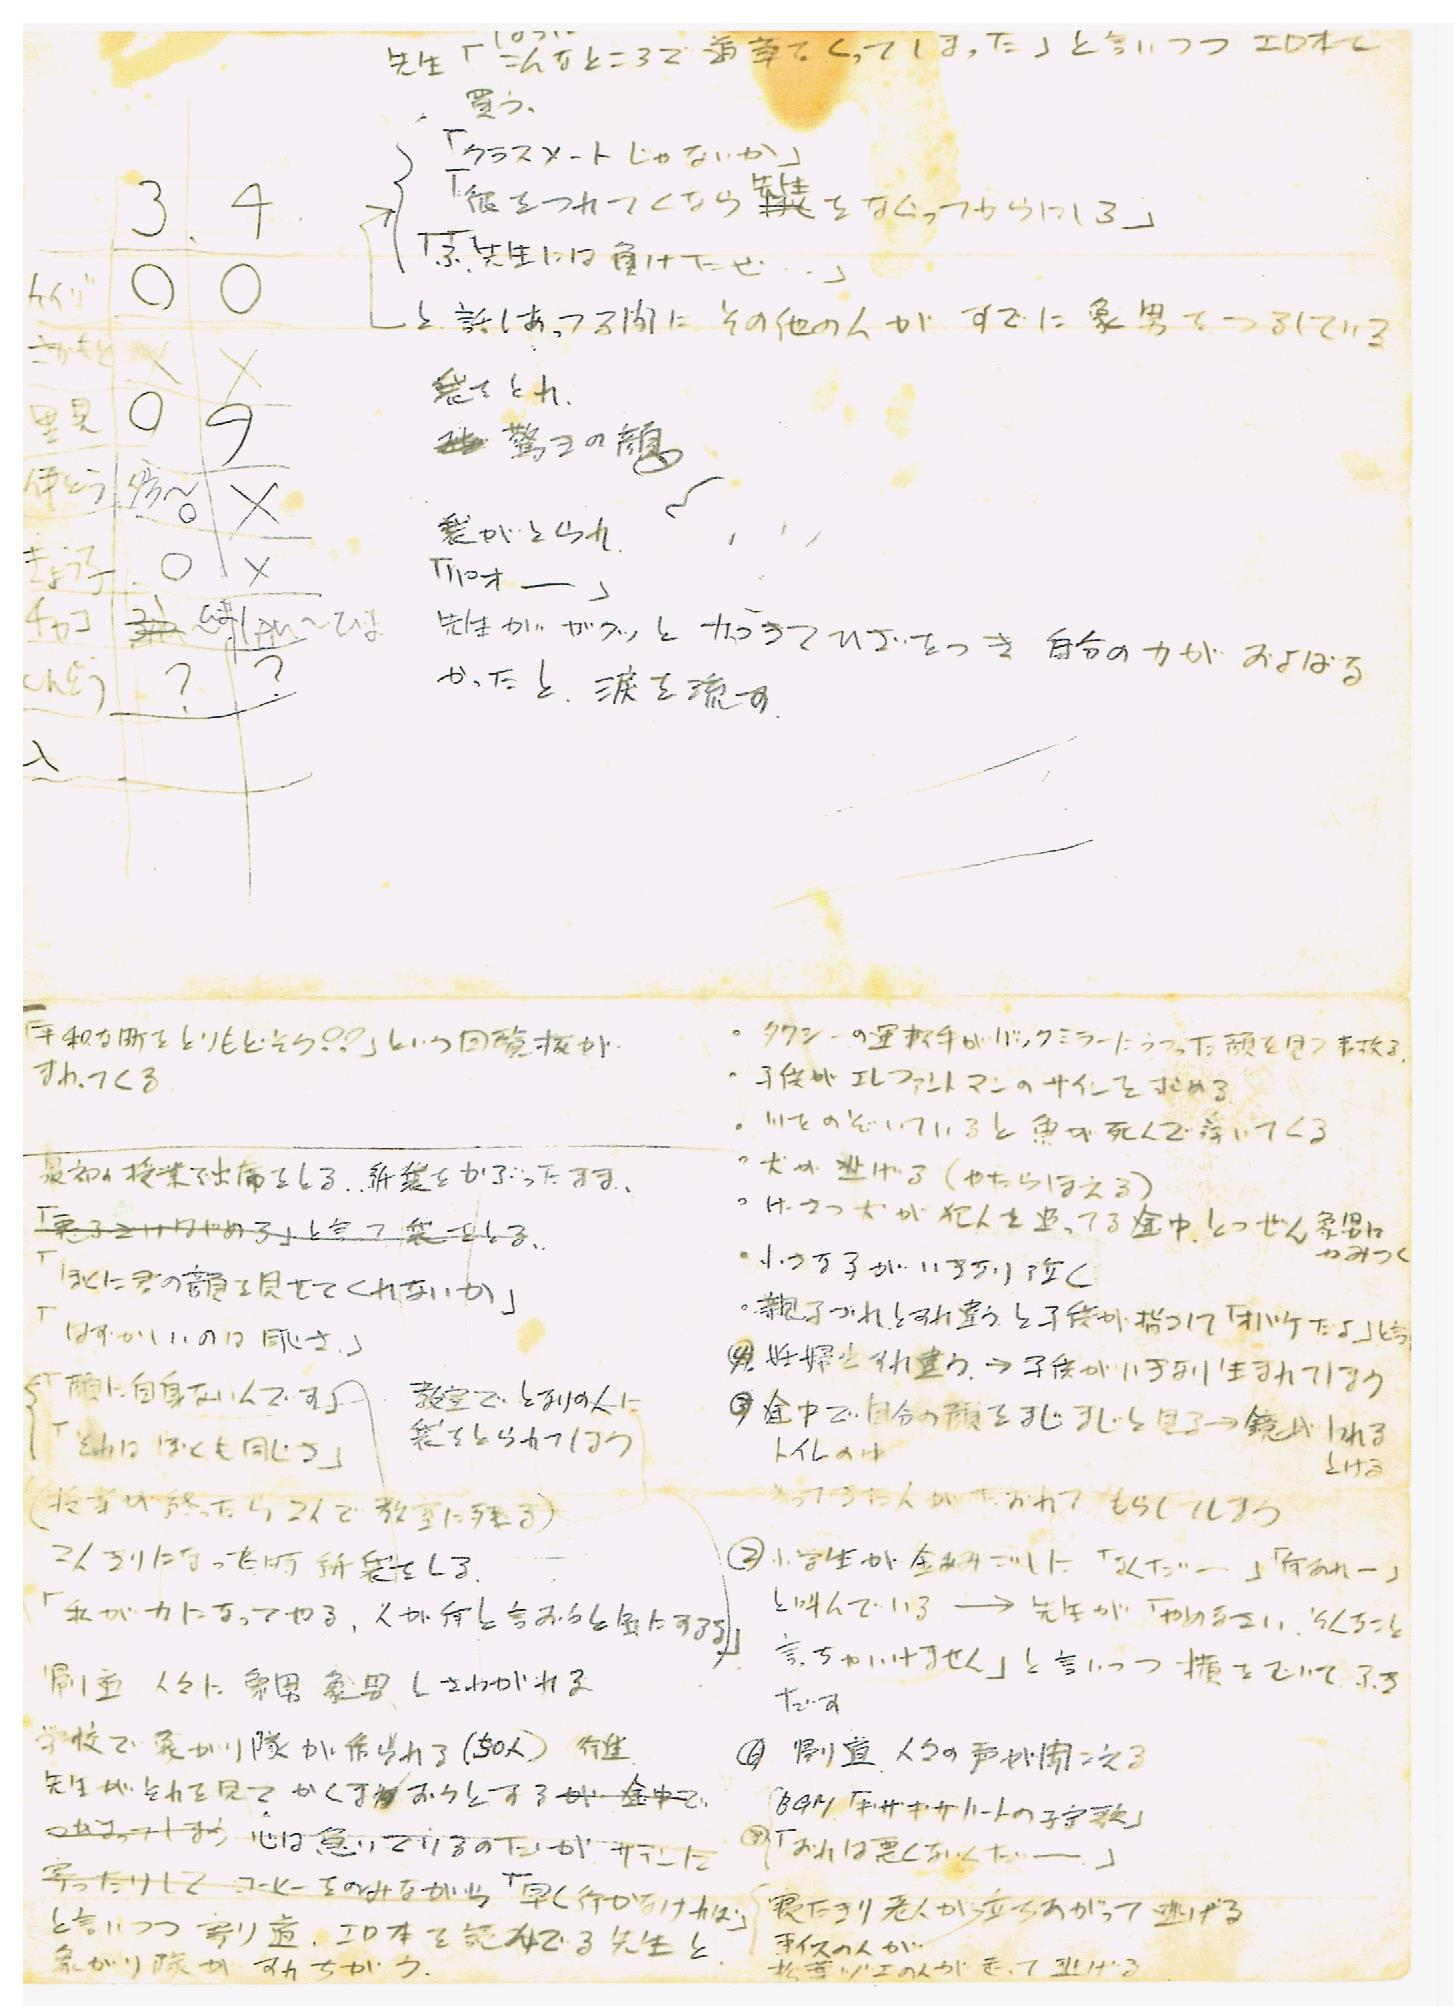 先生「こんなところで道草をくってしまった」と言いつつ エロ本を
買う、
「クラスメートじゃないか」
「彼をつれてくなら 先生をなぐってからにしろ」
「ふ、先生には負けたぜ・・・」
と 話しあってる間に その他の人が すでに 象男をつるしている
袋をとれ、
驚きの顔
袋がとられ
「パオ――」
先生が ガクッと ひざをつき 自分の力が およばな
かったと、涙を流す
3. 4
ケイジ ○ ○
さかもと × ×
里見 ○
伊とう ×
きょう子 ○ ×
チャコ
しんどう ? ?
「平和な町をとりもどそう??」という回覧板が
まわってくる
最初の授業で出席をとる、紙袋をかぶったまま、
と言って 袋をとる、
「ぼくに君の顔を見せてくれないか」
「はずかしいのは同じさ」
「顔に自身ないんです」
「それは ぼくも同じさ」
教室で となりの人に
袋をとられてしまう
(授業が終ったら 2人で 教室に残る)
2人きりになった時 紙袋をとる
「私が力になってやる、人が何と言おうと気にするな」
帰り道 人々に 象男 象男 とさわがれる
学校で 象がり隊が作られる(50人) 行進
先生がそれを見て かくまおうとするが 途中で
つかまってしまう 心は急いでいるのだが サテンに
寄ったりして コーヒーをのみながら「早く行かなければ」
と言いつつ 寄り道、エロ本を読んでる先生と
象がり隊が すれちがう、
・タクシーの運転手がバックミラーにうつった顔を見て事故る
・子供が エレファントマンのサインを求める
・川をのぞいていると 魚が死んで浮いてくる
・犬が逃げる(やたらほえる)
・けーさつ犬が 犯人を追ってる途中、とつぜん 象男に
かみつく
・小さな子が いきなり泣く
・親子づれとすれ違うと子供が 指さして「オバケだよ」と言う
④ 妊婦とすれ違う → 子供がいきなり生まれてしまう
途中で 自分の顔をまじまじと見る → 鏡が われる
トイレの中
とける
入ってきた人が たおれて もらしてしまう
② 小学生が 金あみごしに
と叫んでいる → 先生が「やめなさい、そんなこと
言っちゃいけません」と言いつつ 横をむいて ふき
だす
⑥ 帰り道 人々の声が聞こえる
BGM「ギザギザハートの子守歌」
「おれは悪くないんだ――」
寝たきり老人が立ちあがって 逃げる
車イスの人が
松葉ヅエの人が 走って 逃げる